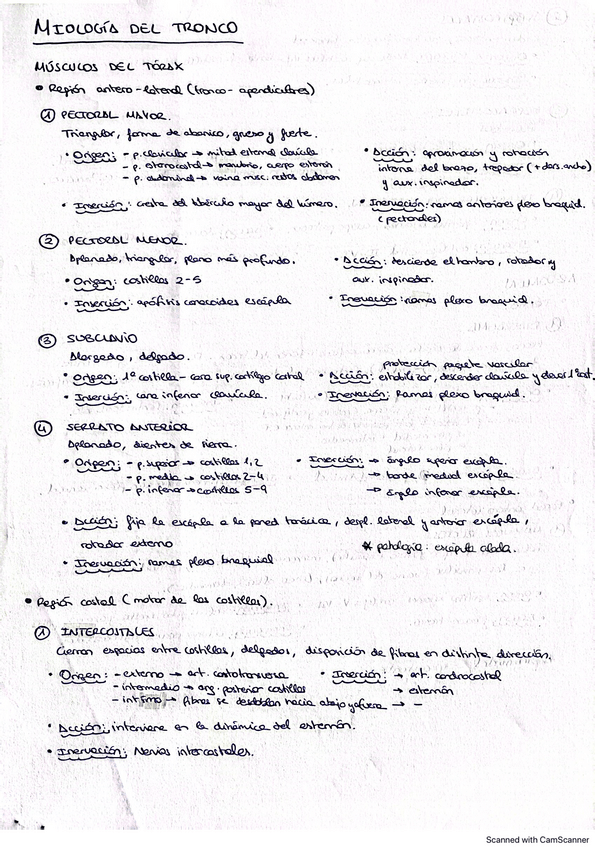 MIOLOGÍA DEL TRONCO
MÚSCULOS DEL TÓRAX
• Región antero-lateral (tronco-apendiculares)
① PECTORAL MAYOR.
Triangular, forma de abanico, grueso y fuerte.
• Origen: - p. clavicular → mitad esternal clavícula
- p. esternocostal → manubrio, cuerpo esternón
- p. abdominal → vaina musc. rectos abdomen
• Inserción: cresta del tubérculo mayor del húmero.
• Acción: aproximación y rotación
interna del brazo, trepador (+ dors. ancho)
y aux. inspirador.
• Inervación: ramos anteriores plexo braquid.
(pectorales)
② PECTORAL MENOR.
Aplanado, triangular, plano más profundo.
• Origen: costillas 2-5
• Inserción: apófisis coracoides escápula
• Acción: desciende el hombro, rotador y
aux. inspirador.
• Inervación: ramos plexo braquid.
③ SUBCLAVIO
Alargado, delgado.
• Origen: 1ª costilla - cara sup. cartílgo costal
• Inserción: cara inferior clavícula.
protección paquete vascular
• Acción: estabilizar, descender clavícula y elevar 1ª cost.
• Inervación: Ramos plexo braquid.
④ SERRATO ANTERIOR
Aplanado, dientes de sierra.
• Origen: - p. superior → costillas 1,2
- p. media → costillas 2-4
- p. inferior → costillas 5-9
• Inserción: → ángulo superior escápula.
→ borde medial escápula.
→ ángulo inferior escápula.
• Acción: fija la escápula a la pared torácica, despl. lateral y anterior escápula,
rotador externo
* patología: escápula alada.
• Inervación: ramos plexo braquial
• Región costal (motor de las costillas).
① INTERCOSTALES
Cierran espacios entre costillas, delgados, disposición de fibras en distinta dirección.
• Origen: - externo → art. costotransversa
- intermedio → ang. posterior costillas
- íntimo → fibras se desdoblan hacia abajo y afuera → -
• Inserción: → art. condrocostal
→ esternón
• Acción: interviene en la dinámica del esternón.
• Inervación: Nervios intercostales.
Scanned with CamScanner